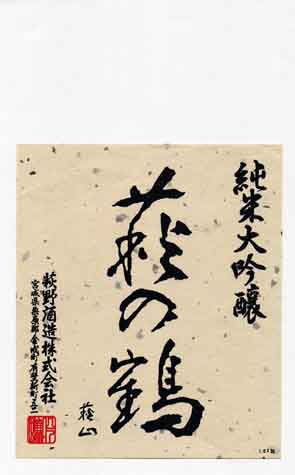 純米大吟醸
萩の鶴
蘓山
萩野酒造株式会社
宮城県栗原郡金成町有壁新町五二